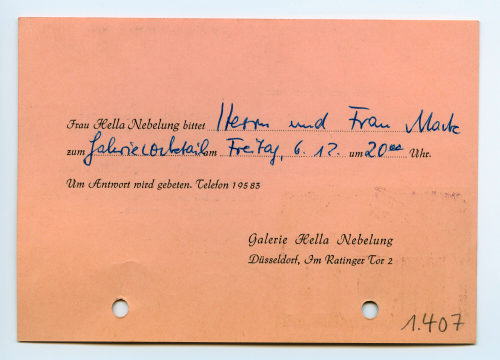 Frau Hella Nebelung bittet Herrn und Frau Mack
zum Galeriecocktail am Freitag, 6.12. um 20°° Uhr.
Um Antwort wird gebeten. Telefon 19583
Galerie Hella Nebelung
Düsseldorf, Im Ratinger Tor 2
1.407